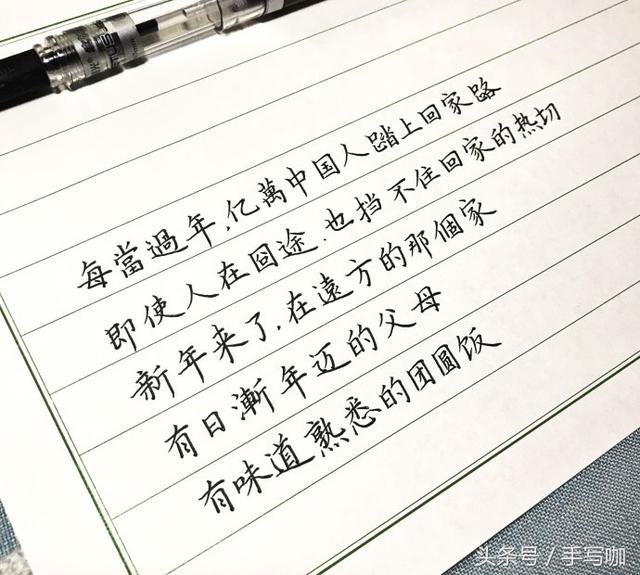 每當過年,亿萬中国人踏上回家路
即使人在囧途.也挡不住回家的热切
新年来了.在遠方的那個家
有日漸年迈的父母
有味道熟悉的团圆饭
头条号/手写咖